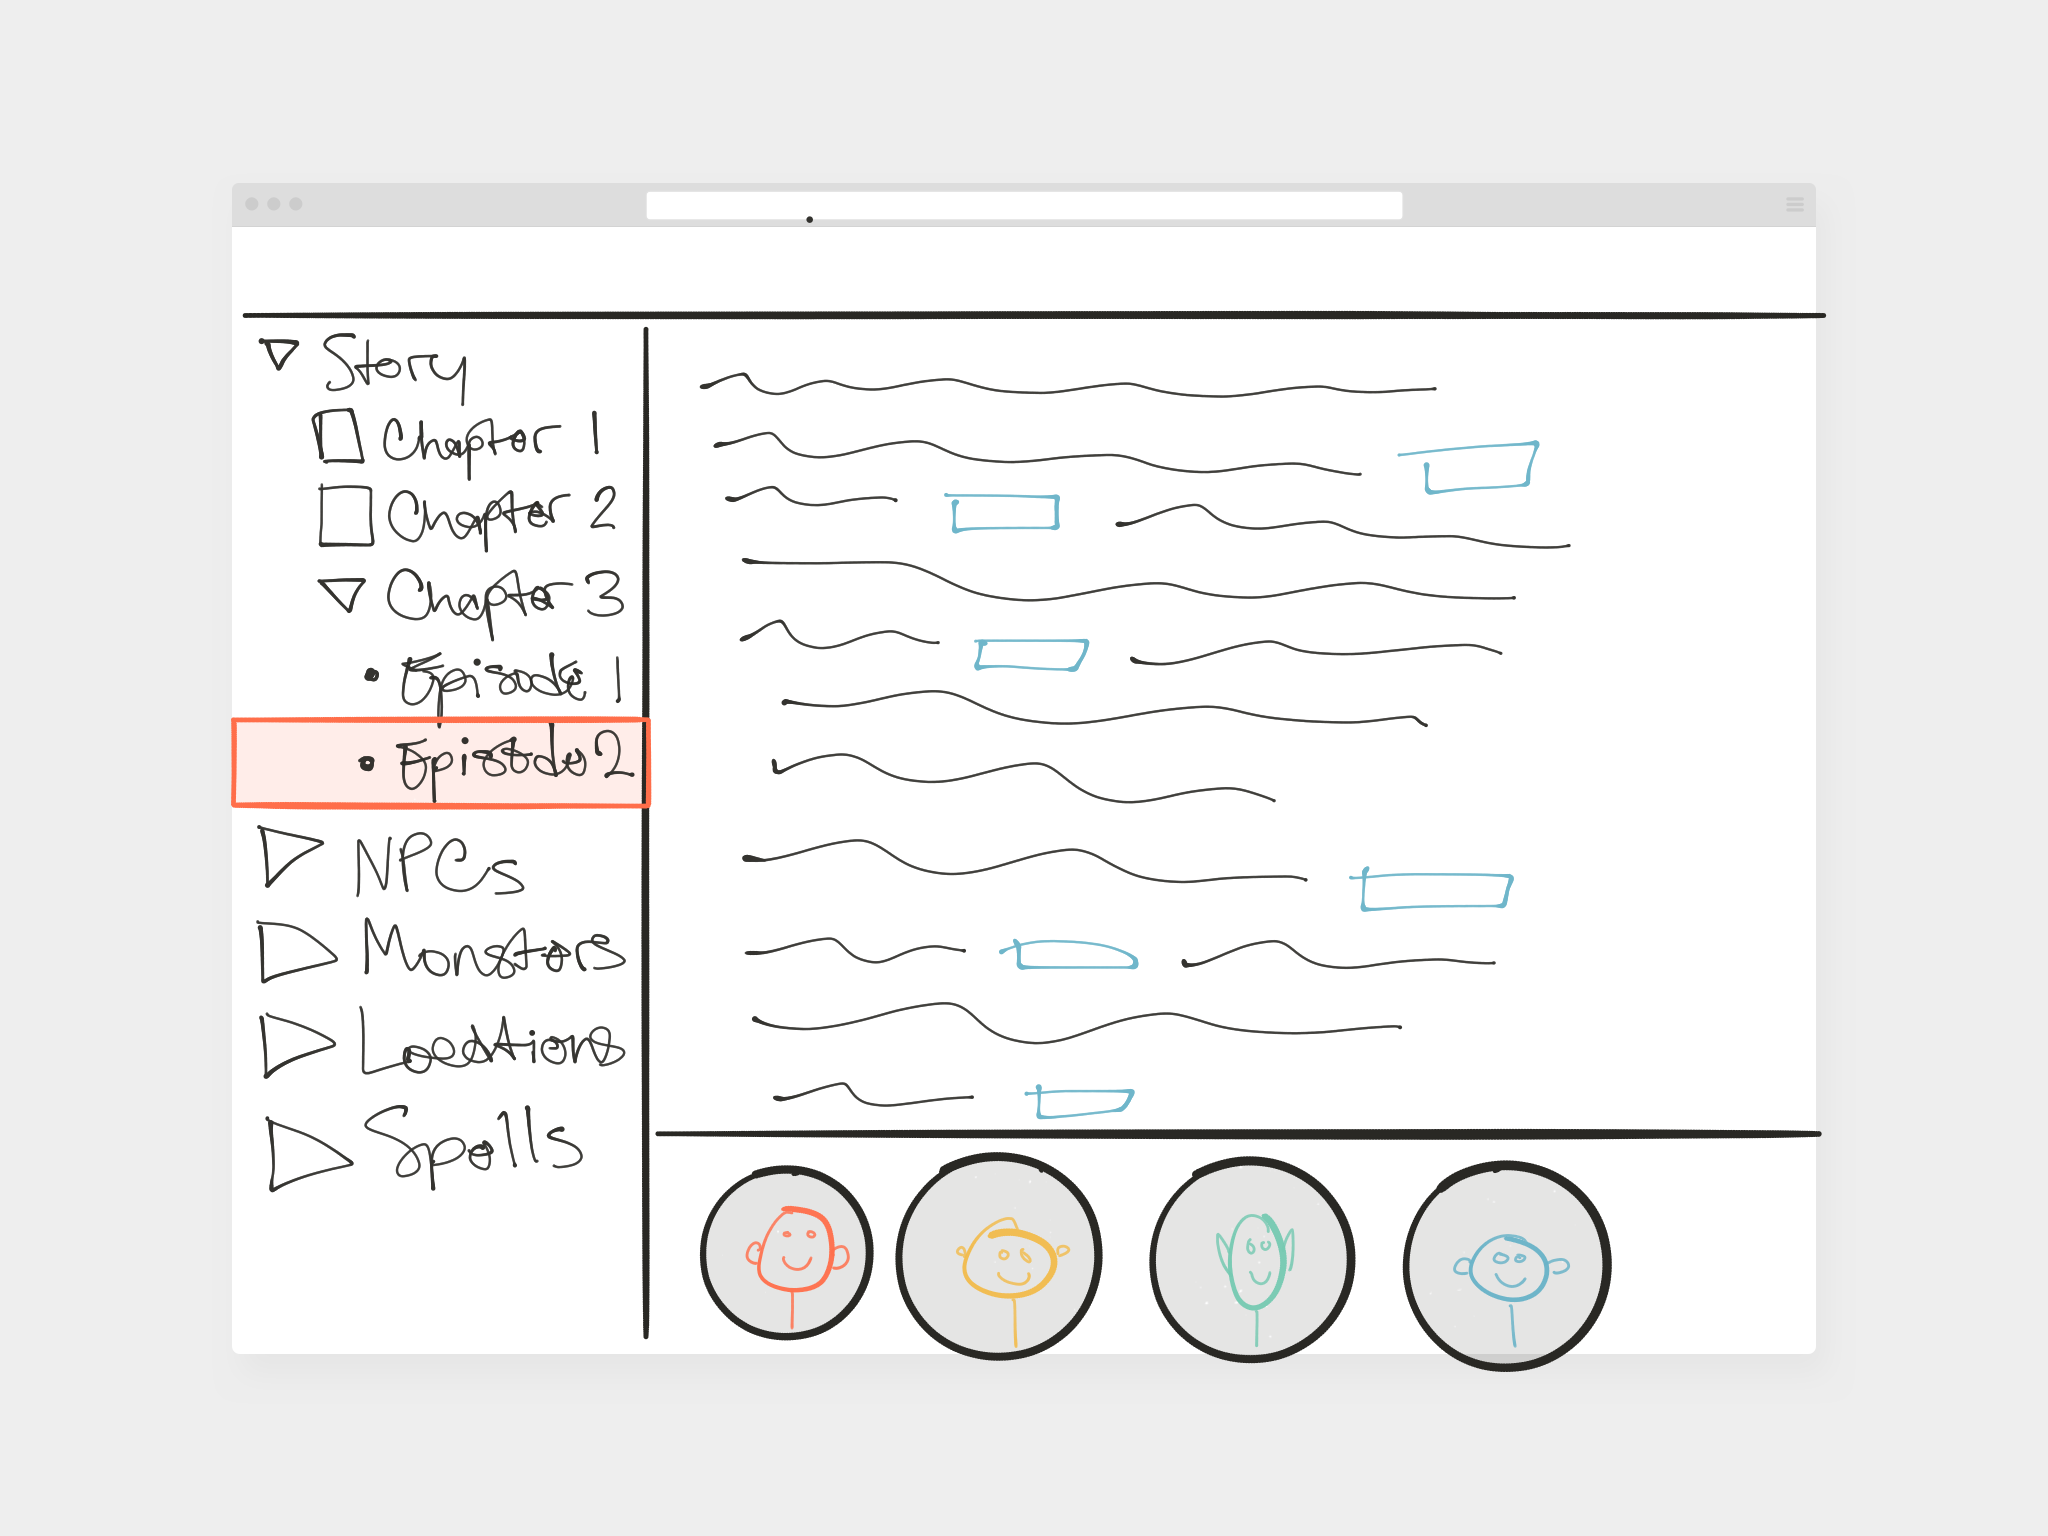 Story
Chapter 1
Chapter 2
Chapter 3
Episode 1
Episode 2
NPCs
Monsters
Locations
Spells